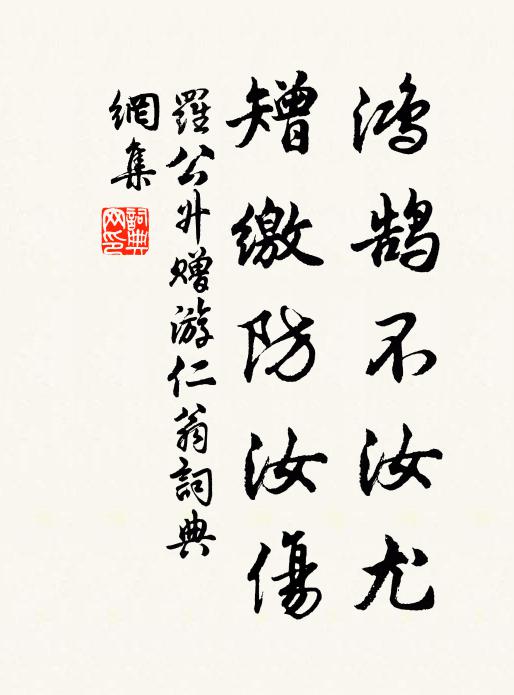 鸿鹄不汝尤
矰缴防汝傷
羅公升贈游仁翁詞典
網集
詞典
网印